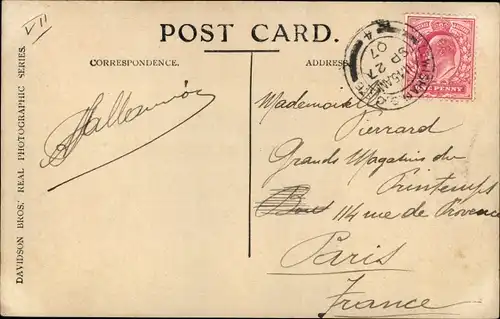 VII
POST CARD.
CORRESPONDENCE.
ADDRESS
SP 27
07
PENNY
DAVIDSON BROS.' REAL PHOTOGRAPHIC SERIES.
Mademoiselle
Pierrard
Grands Magasins du
Printemps
114 rue de Provence
Paris
France